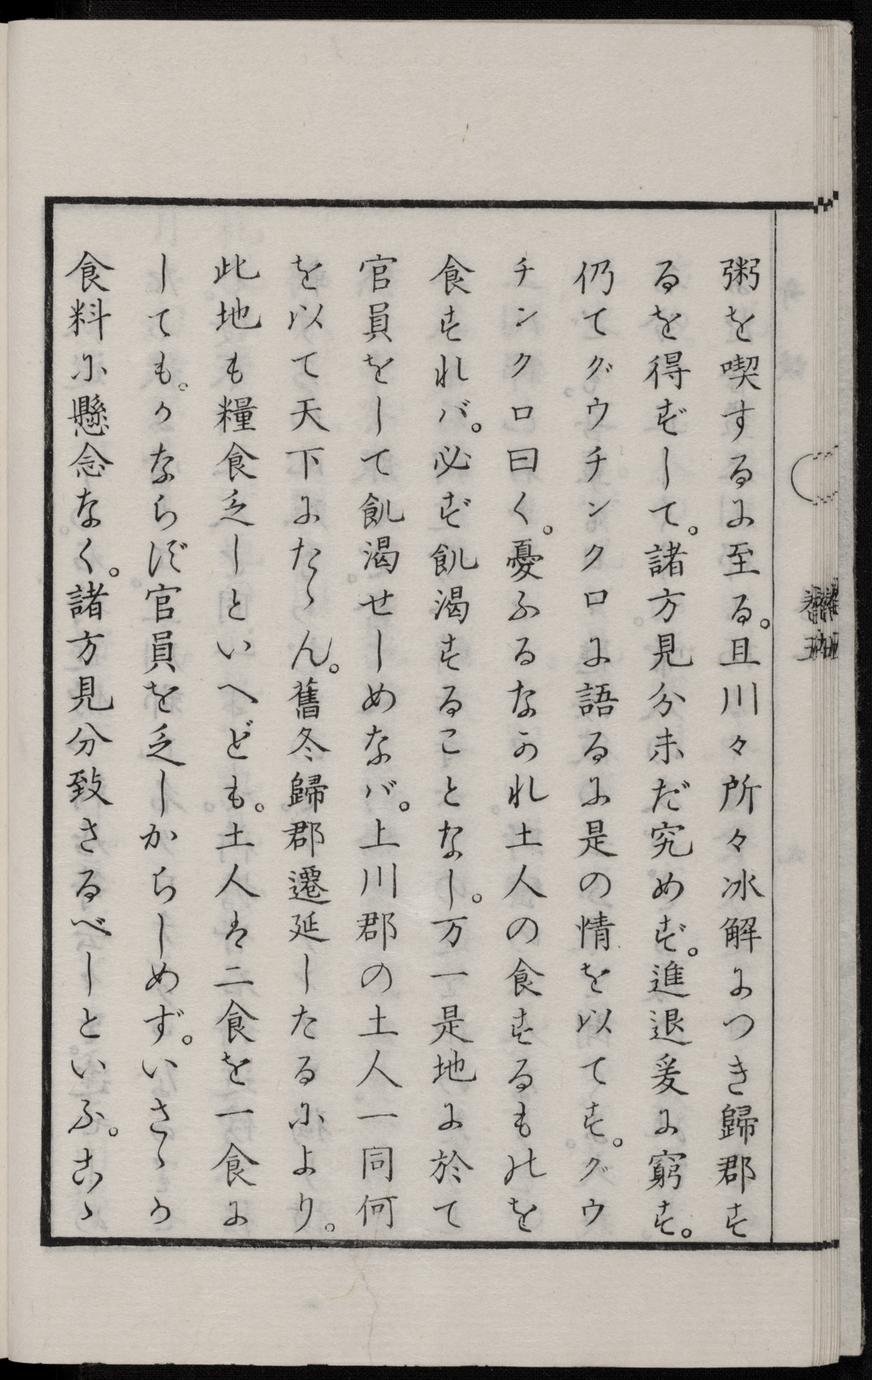 粥を喫するに至る。且川々所々冰解につき歸郡す
るを得ずして。諸方見分未だ究めず。進退爰に窮す。
仍てグウチンクロに語るに是の情を以てす。グウ
チンクロ曰く。憂ふるなかれ土人の食するものを
食すれバ。必ず飢渴することなし。万一是地に於て
官員をして飢渴せしめなバ。上川郡の土人一同何
を以て天下にたゝん。舊冬歸郡遷延したるにより。
此地も糧食乏しといへども。土人は二食を一食に
しても。かならず官員を乏しからしめず。いさゝか
食料に懸念なく。諸方見分致さるべしといふ。こゝ